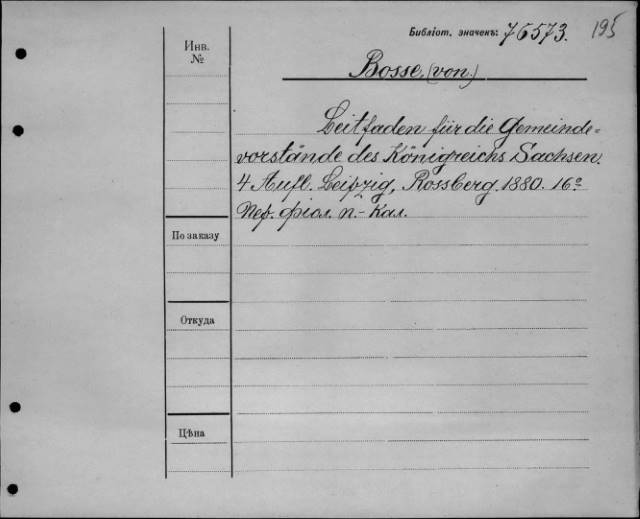 Библіот. значекъ: 76573. 195
Инв.
№
Bosse, (von.)
Leitfaden für die Gemeinde=
vorstände des Königreichs Sachsen.
4 Aufl. Leipzig, Rossberg. 1880. 16º
Пер. фіол. п.-кал.
По заказу
Откуда
Цѣна